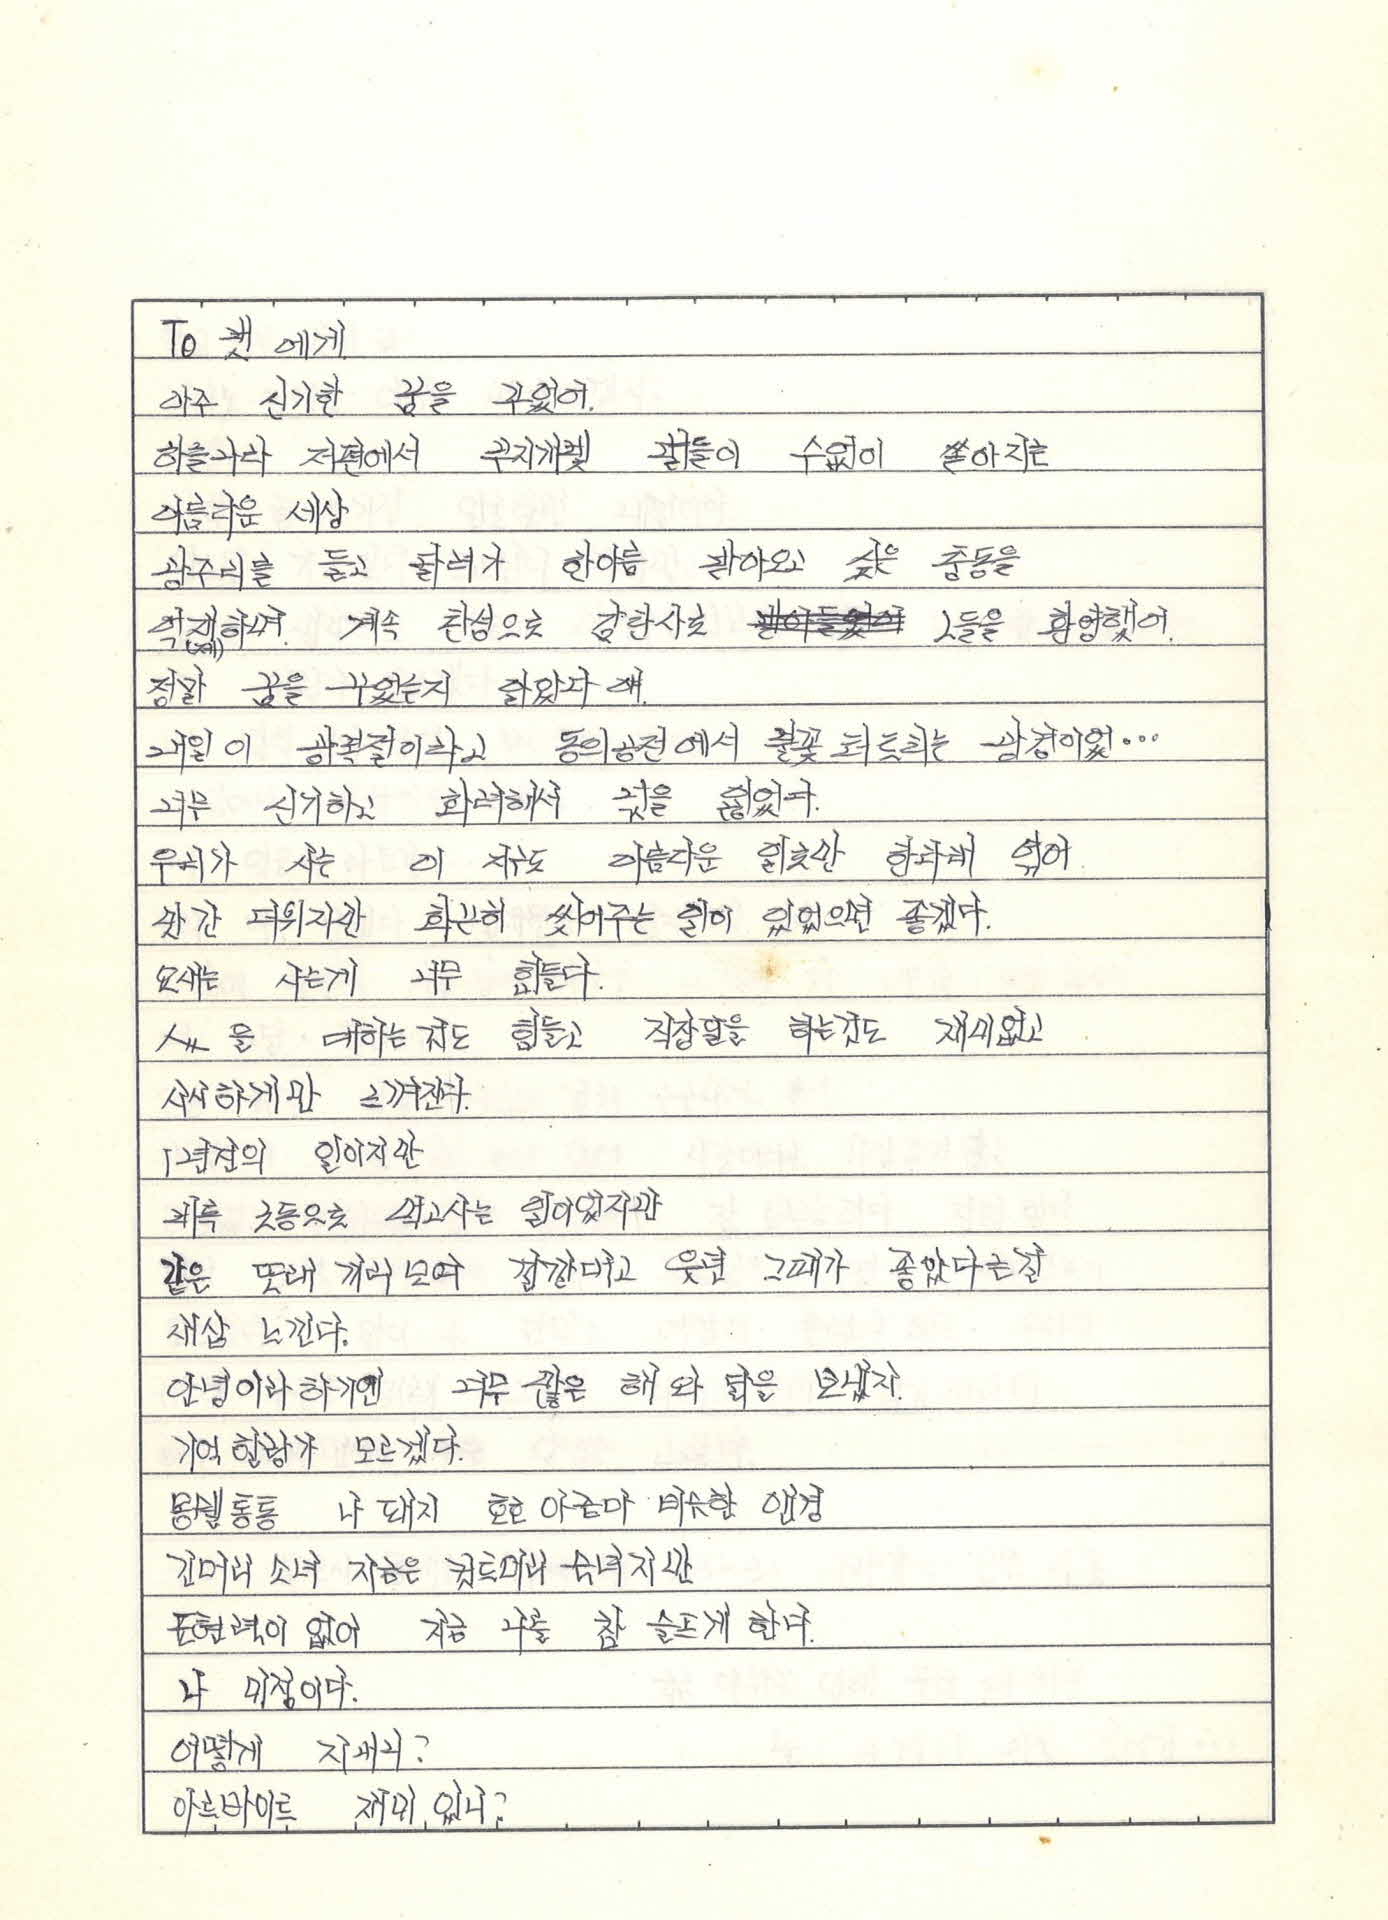 To 캣 에게
아주 신기한 꿈을 꾸었어.
하늘나라 저편에서 무지개빛 꽃들이 수없이 쏟아지는
아름다운 세상
광주리를 들고 달려가 한아름 받아오고 싶은 충동을
억제하며. 계속 환성으로 감탄사로 그들을 환영했어.
(제)
정말 꿈을 꾸었는지 알았다 얘.
내일이 광복절이라고 동의공전에서 불꽃 터트리는 광경이었…
너무 신기하고 화려해서 넋을 잃었다.
우리가 사는 이 지구도 아름다운 일츠만 한다래 엮어
잠깐 더위지만 화끈히 씻어주는 일이 있었으면 좋겠다.
요새는 사는게 너무 힘들다.
사람을 대하는 것도 힘들고 직장말을 하는것도 재미없고
시시하게만 느껴진다.
1년전의 일이지만
비록 고등으로 먹고사는 일이었지만
같은 또래 끼리 모여 깔깔대고 웃던 그때가 좋았다는걸
새삼 느낀다.
안녕이라 하기엔 너무 짧은 해와 달을 보냈지.
기억할랑가 모르겠다.
몽쉘통통 나 돼지 호호 아줌마 비슷한 안경
긴머리 소녀 지금은 컷트머리 숙녀지만
표현력이 없어 지금 나를 참 슬프게 한다.
나 미정이다.
어떻게 지내니?
아르바이트 재미 있니?